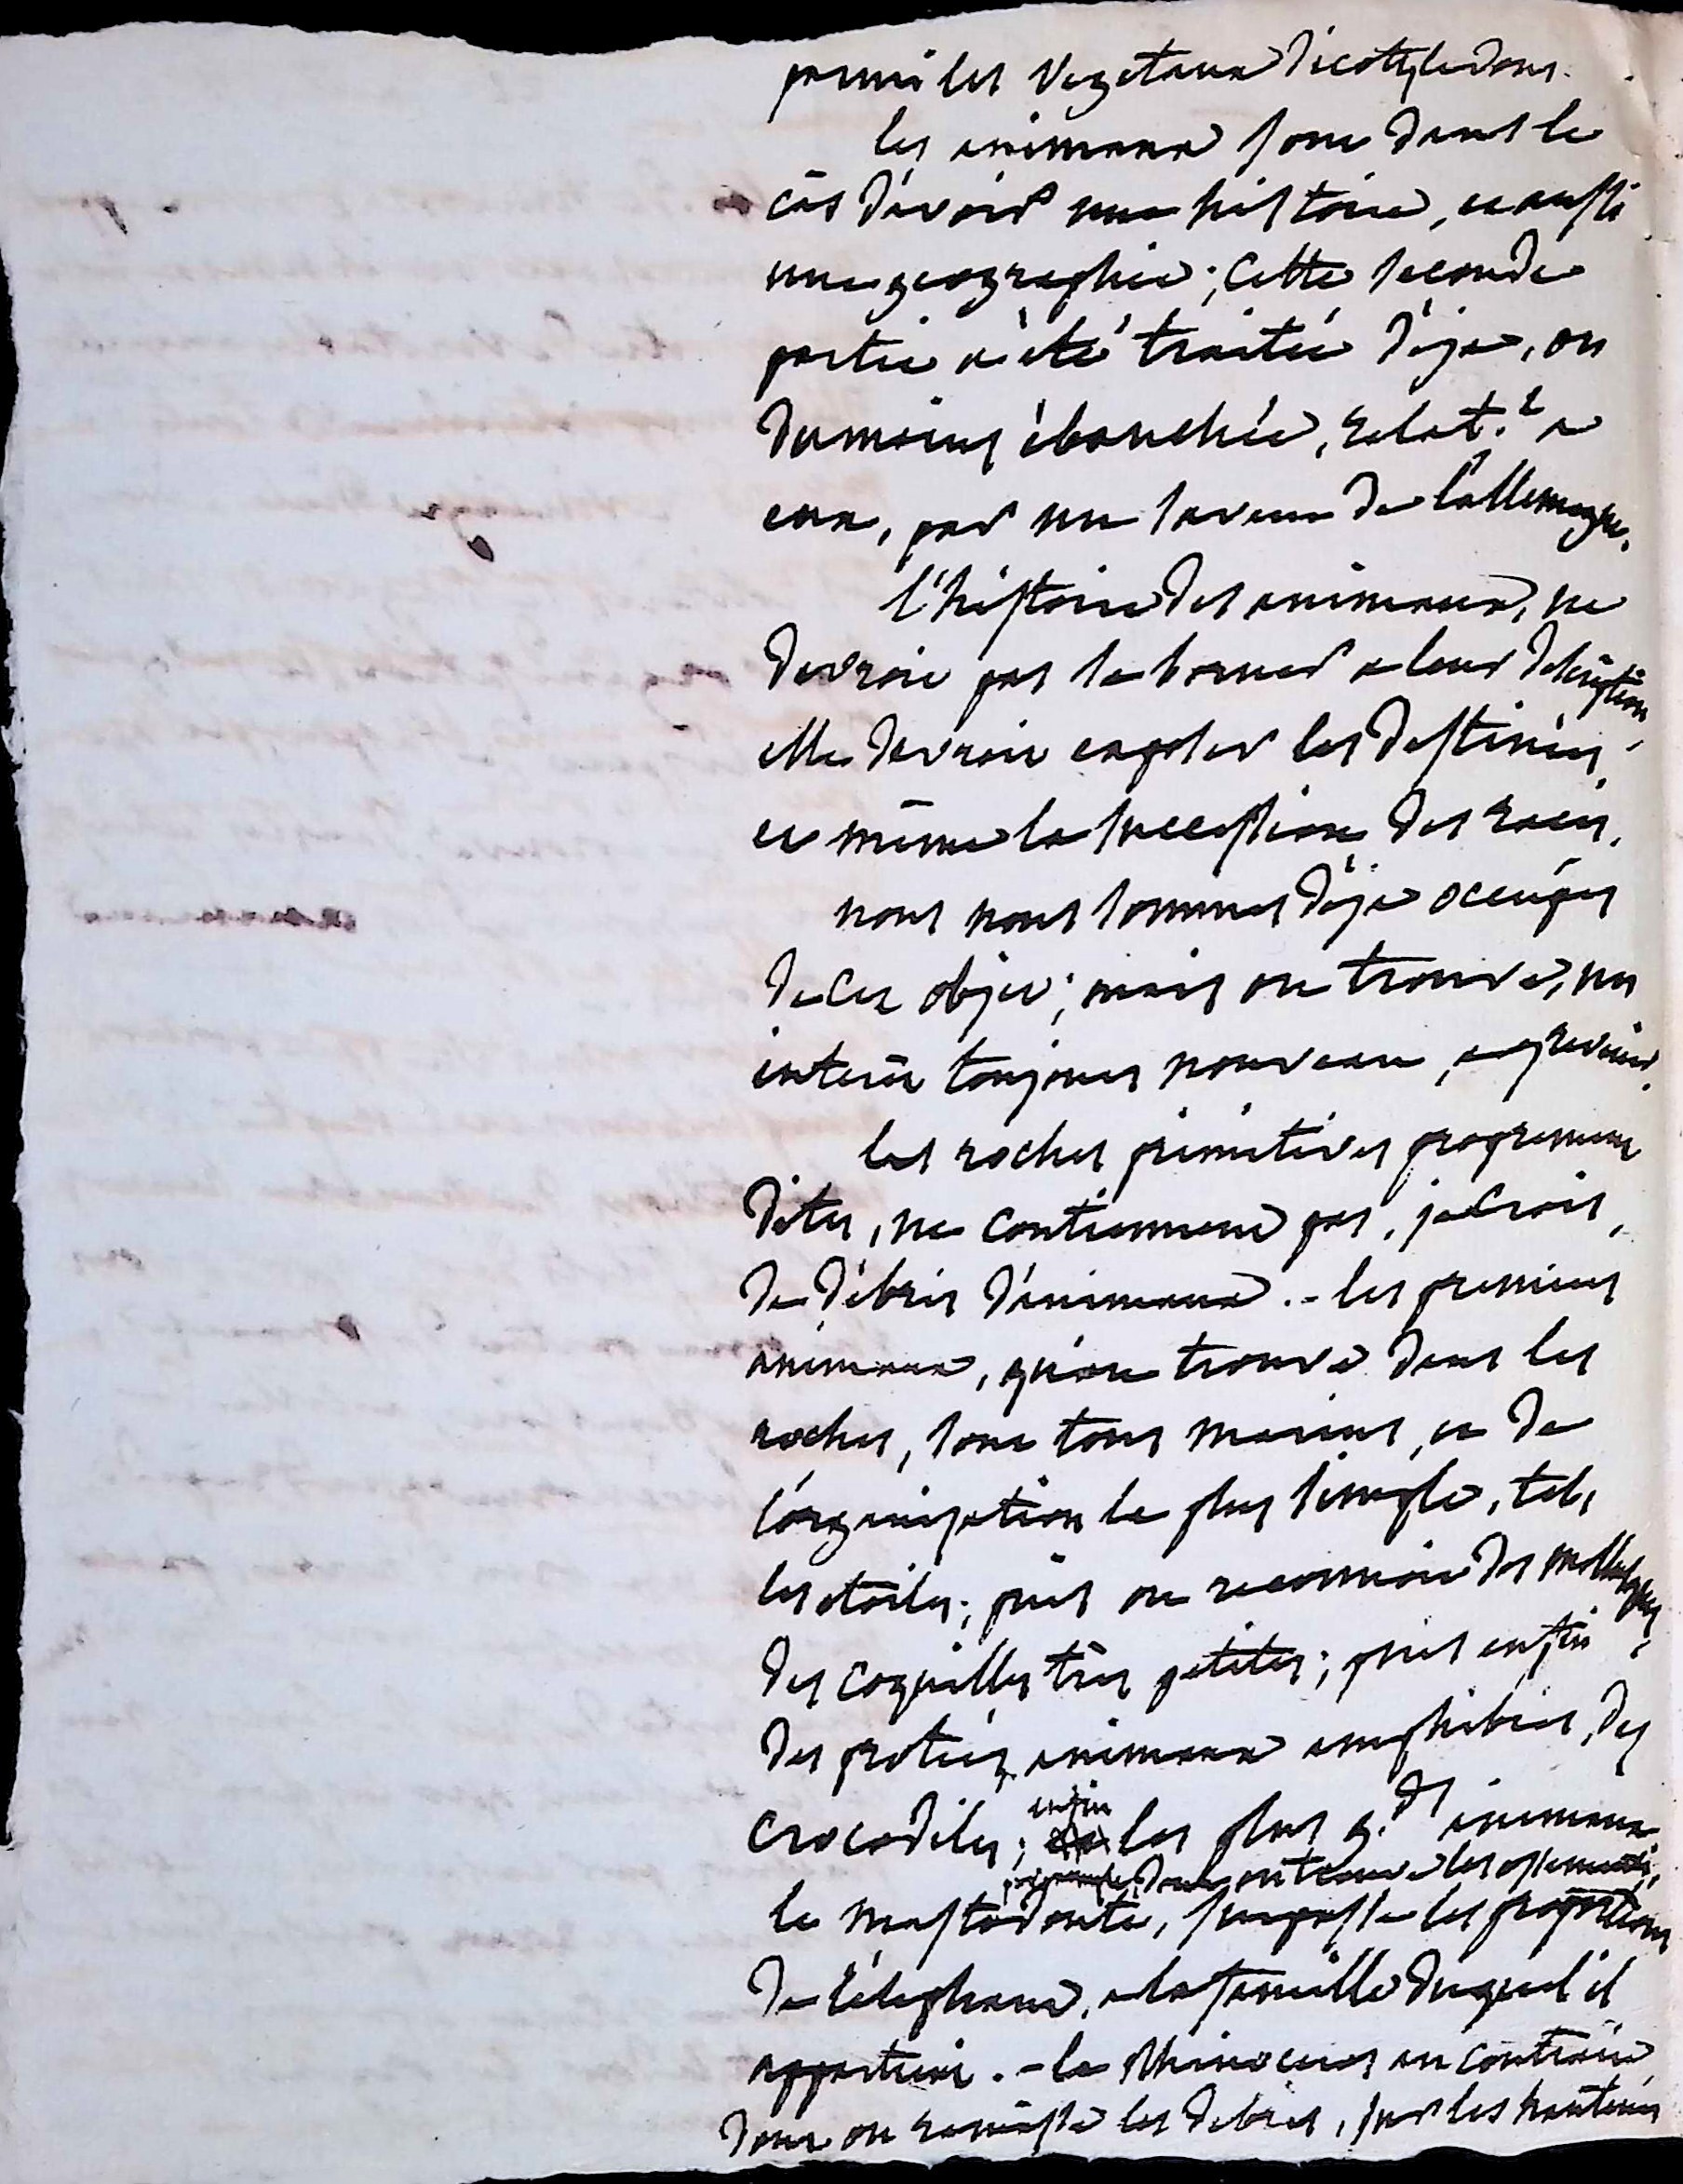 parmi les vegetaux dicotyledons.
les animaux sont dans le
cas d'avoir une histoire, et aussi
une geographie; cette seconde
partie a été traitée déja, ou
du moins ébauchée, relat.t a
eux, par un savant de l'allemagne.
l'histoire des animaux, ne
devroit pas se borner a leur description,
elle devroit exposer les destinées,
et même la succession des races.
nous nous sommes déja occupés
de cet objet; mais on trouve, un
interêt toujours nouveau, a y revenir.
les roches primitives proprement
dites, ne contiennent pas, je crois,
de débris d'animaux. - les premiers
animaux, qu'on trouve dans les
roches, sont tous marins, et de
l'organisation la plus simple, tels
les étoiles; puis on reconnoit des mollusques,
des coquilles très petites; puis enfin
des protées, animaux amphibies, des
crocodiles; enfin les plus g.ds animaux
dont on trouve les ossements,
le mastodonte, surpasse les proportions
de l'éléphant, a la famille duquel il
appartient. - le rhinoceros au contraire
dont on ramasse les debris, sur les hauteurs